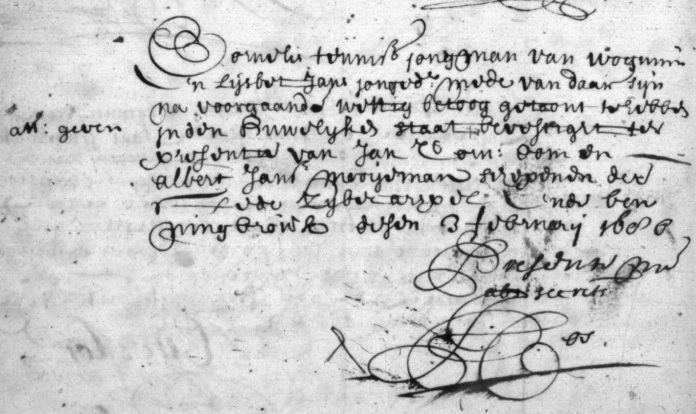 Cornelis teunisz jongman van wognum
en Lijsbet Jans jongedr mede van daar sijn
na voorgaande wettig betoog getoont te hebben
att: geven
in den Huwelijken staat bevestigt ter
presentie van Jan Corn: Dom en
albert Jansz mooijeman schepenen der
stede Sijbecarspel Ende ben
ningbroek desen 3 februarij 1686
Presente mij
als secrets